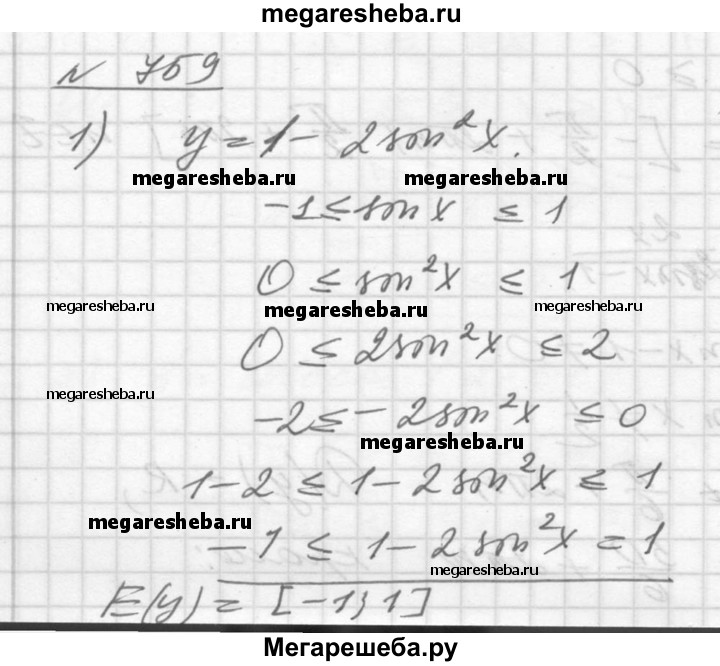 megaresheba.ru
N 759
1) y = 1 - 2 sin²x.
megaresheba.ru megaresheba.ru
-1 ≤ sin x ≤ 1
0 ≤ sin²x ≤ 1
megaresheba.ru megaresheba.ru megaresheba.ru
0 ≤ 2sin²x ≤ 2
megaresheba.ru
-2 ≤ -2sin²x ≤ 0
megaresheba.ru
1-2 ≤ 1-2 sin²x ≤ 1
megaresheba.ru
-1 ≤ 1-2 sin²x = 1
megaresheba.ru
E(y) = [-1; 1]
Мегарешеба.ру